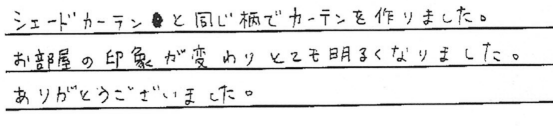 シェードカーテンと同じ柄でカーテンを作りました。
お部屋の印象が変わりとても明るくなりました。
ありがとうございました。